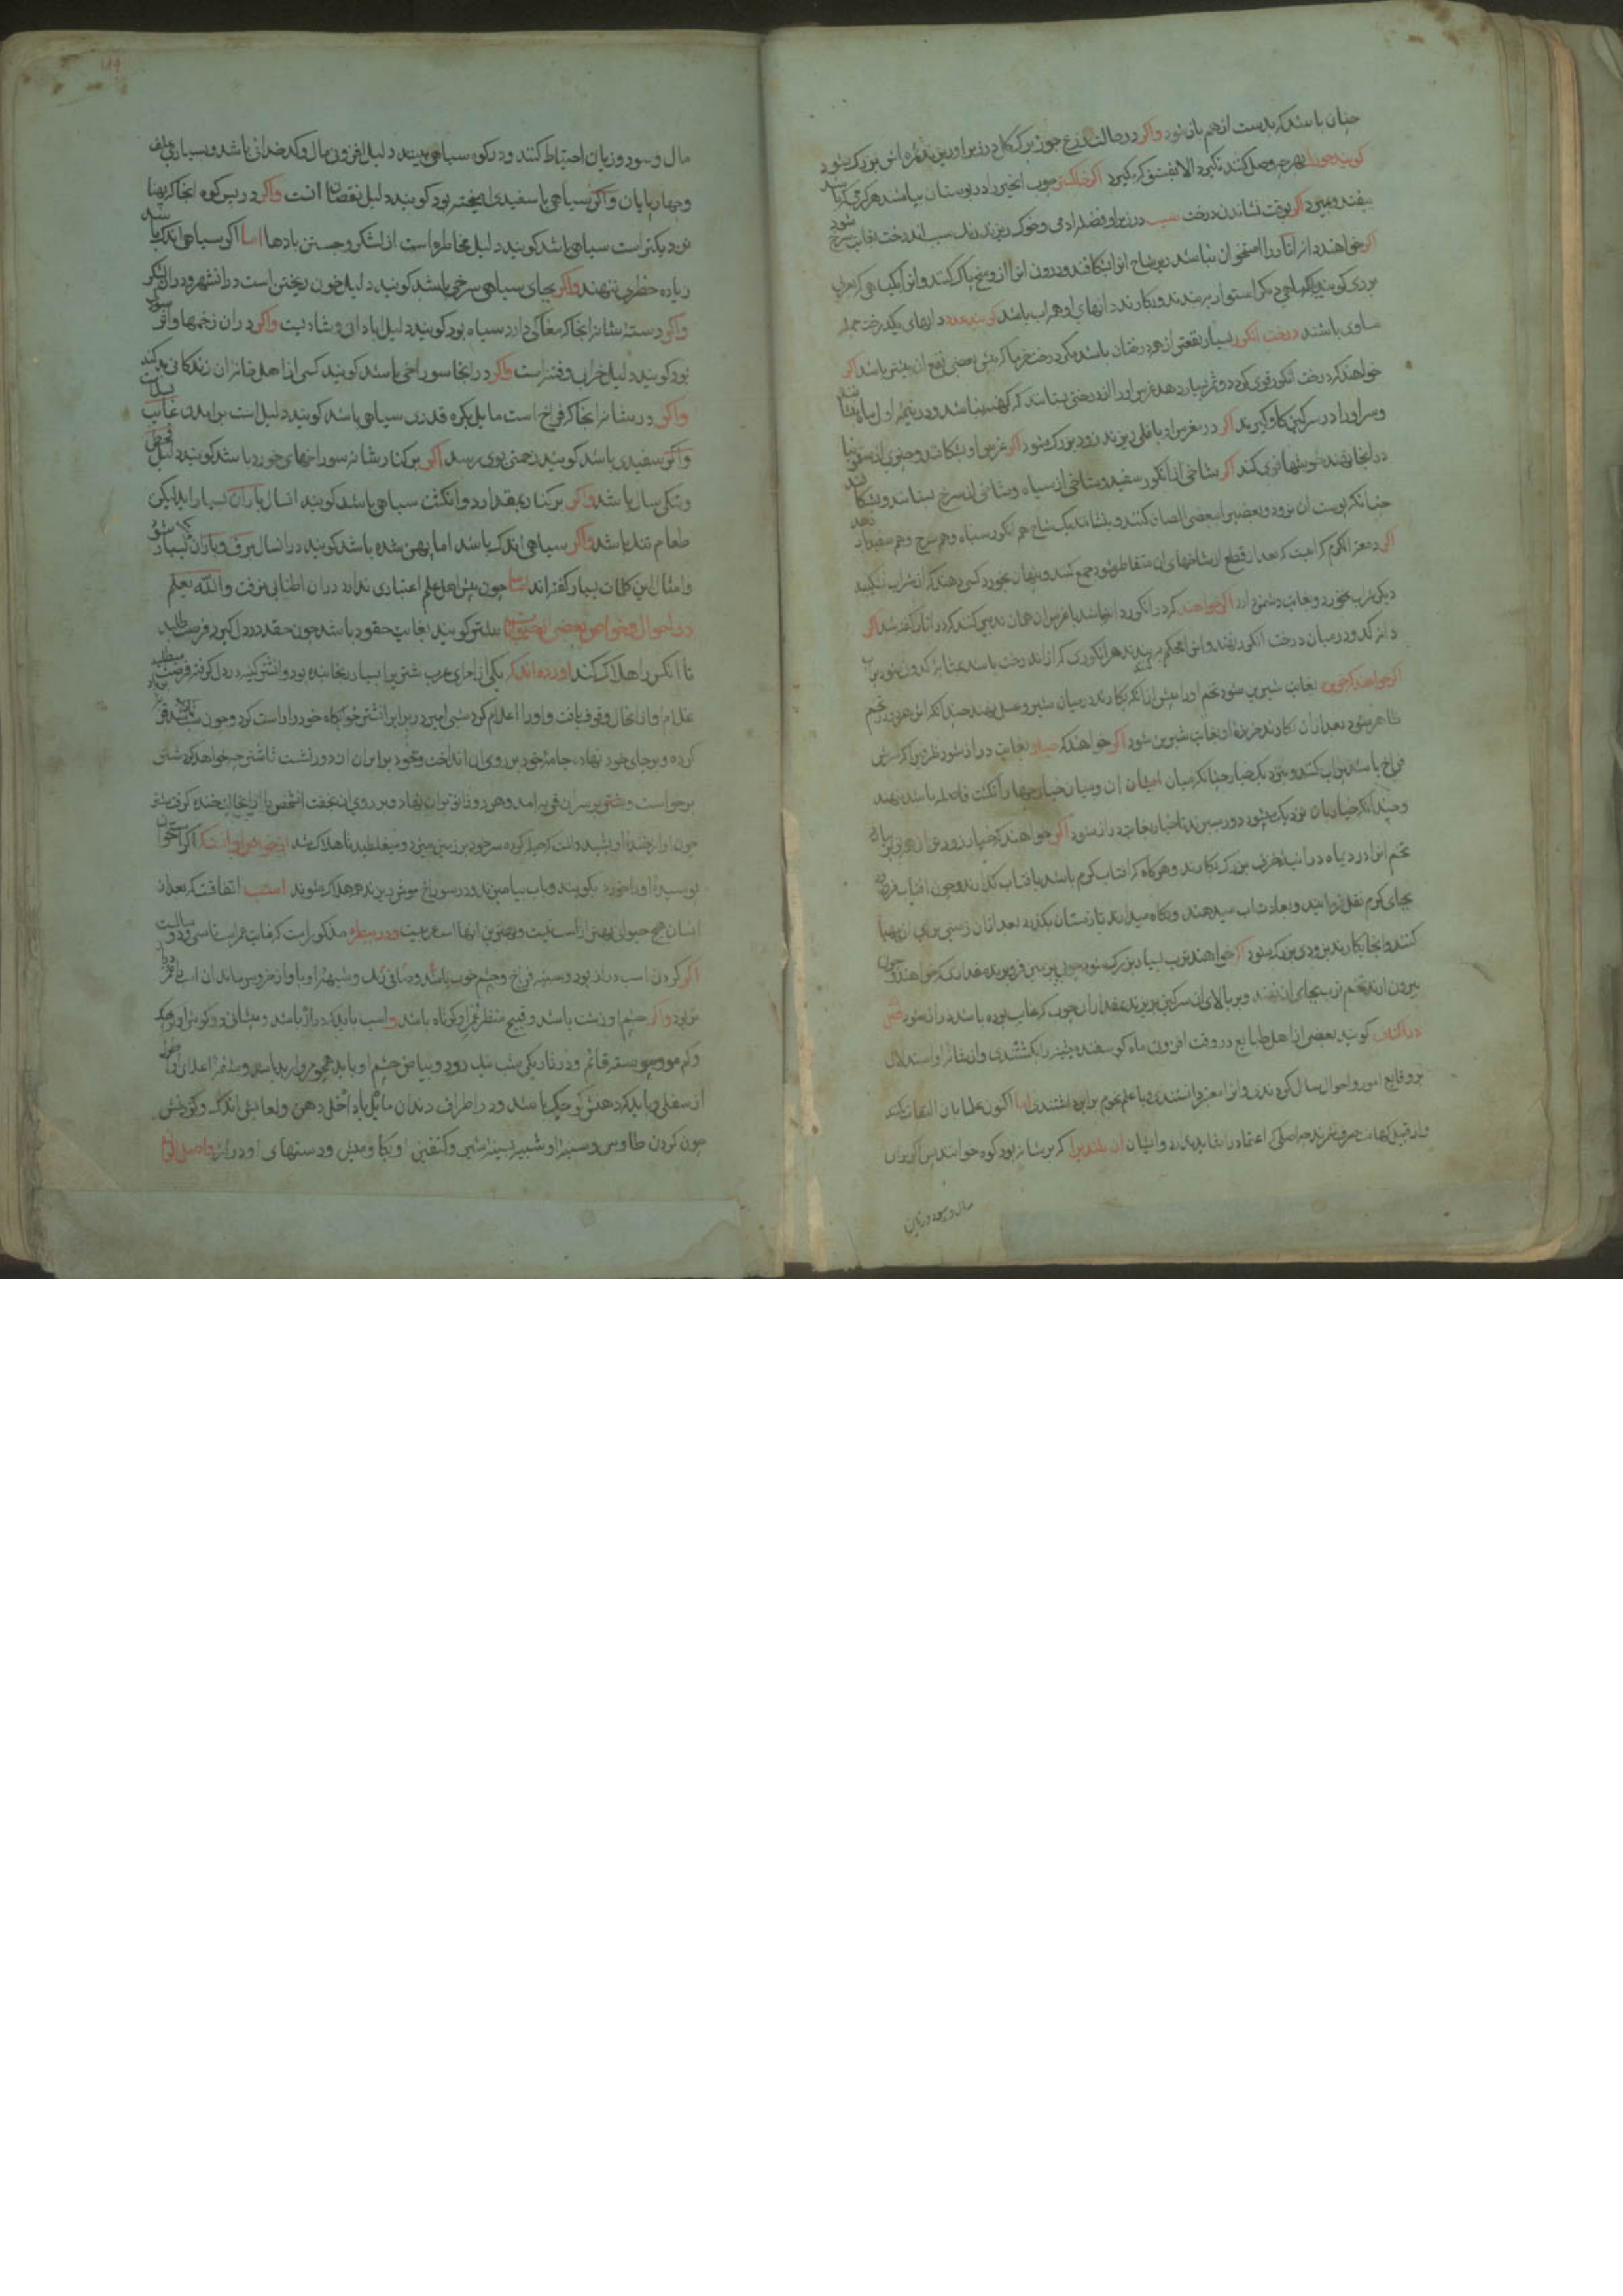 چنان باشد که بدست از هم باز شود واکر در حالت زرع جوز برک کل در زیر او ریزند ثمره اش بزرک شود
کویند جوز را بهر چه وصل کنند نکیرد الا بفستق که بکیرد اکر خاکستر چوب انجیر را در بوستان بپاشند هر کرمی که باشد
بیفتد و بمیرد اکر بوقت نشاندن درخت سیب در زیر او فضله ادمی و خوک ریزند رنک سیب ان درخت بغایت سرخ شود
اکر خواهند دانه انار را استخوان نباشد بن شاخ انرا بشکافند و درون انرا از وسخ پاک کنند و انرا بکیاهی که بعربی
بردی کویند یا کیاهی دیکر استوار بر بندند و بکارند دانهای او همه اب باشد کویند عدد دانهای یک درخت جمله
مساوی باشند درخت انکور بسیار نفع تر از همه درختان باشد مکر درخت خرما که پیش بعضی نفع ان بیشتر باشد اکر
خواهند که درخت انکور قوی کردد و ثمر بسیار دهد غرس او را از درختی بستانند که کهنه نباشد و در نیمه اول ماه بنشانند
و سر او را در سرکین کاو کیرند اکر در مغرس او باقلی ریزند زود بزرک شود اکر غرس او بشکافند و جزوی از سقمونیا
در انجا نهند خوشهاش نرمی کند اکر شاخی از انکور سفید و شاخی از سیاه و شاخی از سرخ بستانند و بشکافند
چنانکه پوست ان نرود و بعضی را ببعضی الصاق کنند و بنشانند یک شاخ هم انکور سیاه و هم سرخ و هم سفید بار دهد
اکر دمعة الکرم که ابیست که بعد از قطع از شاخهای ان متقاطر شود جمع کنند و پنهان بخورد کسی دهند که از شراب نشکیبد
دیکر شراب نخورد و بغایت دشمن دارد اکر خواهند
دانه کدو در میان درخت انکور نهند و انرا محکم بر بندند هر انکوری که از ان درخت باشد بمثابه کدوی بود بی اب
اکر خواهند که خربزه بغایت شیرین شود تخم او را پیش از انکه بکارند در میان شیر و عسل نهند چندانکه اثر هر دو در تخم
ظاهر شود بعد از ان بکارند خربزه او بغایت شیرین شود اکر خواهند که خیار بغایت دراز شود ظرفی که سرش
فراخ باشد پر اب کنند و بنزدیک خیار چنانکه میان ان و میان خیار چهار انکشت فاصله باشد بنهند
و چندانکه خیار بان نزدیک میشود دورتر میبرند تا خیار بغایت دراز شود اکر خواهند که خیار زودتر از همه بارد
تخم انرا در دیماه در انیه خزف بزرک بکارند و هرکاه که افتاب کرم باشد با فتاب کذارند و چون افتاب فرو رود
بجای کرم نقل فرمایند و بعادت اب میدهند و نکاه میدارند تا زمستان بکذرد بعد از ان زمینی برای ان مهیا
کنند و انجا بکارند بزودی بزرک شود اکر خواهند ترب بسیار بزرک شود چوبی بزمین فرو برند مقدارانکه خواهند و چون
بیرون ارند تخم ترب بجای ان نهند و بر بالای ان سرکین بریزند بمقدار ان چوب که غایب بوده باشد دراز شود فصل
در اکتاف کویند بعضی از اهل طبایع در وقت افزونی ماه کوسفند میشینه را بکشتندی و از شانه او استدلال
بر وقایع امور و احوال سال کردندی و انرا معتبر دانستندی و با علم نجوم برابر داشتندی اما اکنون علما بان التفات نکنند
و از قبیل کهانت صرف شمرند چه اصلی که اعتماد را شاید ندارد و ایشان ان بلندی را که بر شانه بود کوه خوانند پس اکر بران
مال و سود و زیان
مال و سود و زیان احتیاط کنند و در کوه سیاهی بینند دلیل افزونی مال و کدخدائی باشد و بسیاری علف
و چهارپایان واکر سیاهی با سفیدی امیخته بود کویند دلیل نقصان انست واکر در پس کوه انجا که پهنا
نزدیکتر است سیاهی باشد کویند دلیل مخاطره است از لشکر و جستن بادها اما اکر سیاهی اندک باشد
زیاده خطری ننهند واکر بجای سیاهی سرخی باشد کویند دلیل خون ریختن است در انشهر و در ان لشکر
واکر دسته شانه انجا که مغاکی دارد سیاه بود کویند دلیل ابادانی و شادیست واکر در ان زخمها و اثر سوراخ
بود کویند دلیل خرابی و فتنه است واکر در انجا سوراخی باشد کویند کسی از اهل خانه ان زندکانی بدرود کند
واکر در شانه انجا که فراخ است مایل بکره قدری سیاهی باشد کویند دلیل است بر امدن غایب
واکر سفیدی باشد کویند زحمتی بوی برسد اکر بر کنار شانه سوراخهای خورد باشد کویند دلیل قحط
و تنکی سال باشد واکر بر کناره بمقدار دو انکشت سیاهی باشد کویند انسال باران بسیار اید لیکن
طعام تنک باشد واکر سیاهی اندک باشد اما پهن شده باشد کویند در انسال برف و باران بسیار شود
و امثال این کلمات بسیار کفته اند اما چون پیش اهل علم اعتباری ندارد در ان اطنابی نرفت والله یعلم
در احوال و خواص بعضی از حیوانات شتر کویند بغایت حقود باشد چون حقد در دل کیرد فرصت طلبد
تا انکس را هلاک کند اورده اند که یکی از امرای عرب شتری را بسیار رنجانیده بود و ان شتر کینه در دل کرفته فرصت میطلبید
غلام او از انحال وقوف یافت و او را اعلام کرد شبی امیر در برابر ان شتر خوابکاه خود را راست کرد و چون
کرده و بر جای خود نهاد و جامه خود بر روی ان انداخت و خود بر ایران از دور نشست تا شتر چه خواهد کرد شتر
برخواست و بسر ان قربه امد و هر دو زانو بر ان نهاد و بر روی ان بخفت انشخص را از انحال خنده کرفت شتر
چون اواز خنده او بشنید دانست که حیله کرده سر خود بر زمین میزد و میغلطید تا هلاک شد از خواص او انست که اکر استخوان
پوسیده او را خورد بکوبند و باب بیامیزند و در سوراخ موش ریزند همه هلاک شوند اسب اتفاقست که بعد از
انسان هیچ حیوانی بهتر از اسب نیست و بهترین انها اسب عربیست و در بیطره مذکور است که غایت عمر اسب تا سی و دو سالست
اکر کردن اسب دراز بود و سینه فراخ و چشم خوب باشد و صافی رنک و شیهه او باواز خروس ماند ان اسب فرد
بود واکر چشم او زشت باشد و قبیح منظر عمر او کوتاه باشد واسب باید که دراز باشد و پیشانی و کوش او تنک
و کم مو و چون بسته قایم و در تاریکی شب نیک رود و بیاض چشم او باید همچو مروارید باشد و شفه اعلای او
از سفلی و باید که دهنش کوچک باشد و در اطراف دندان مایل بداخل دهن و لعابش اندک و کردنش
چون کردن طاوس و سینه او شبیه بسینه شیر و کتفین او یکسان و پیش و دستهای او دراز